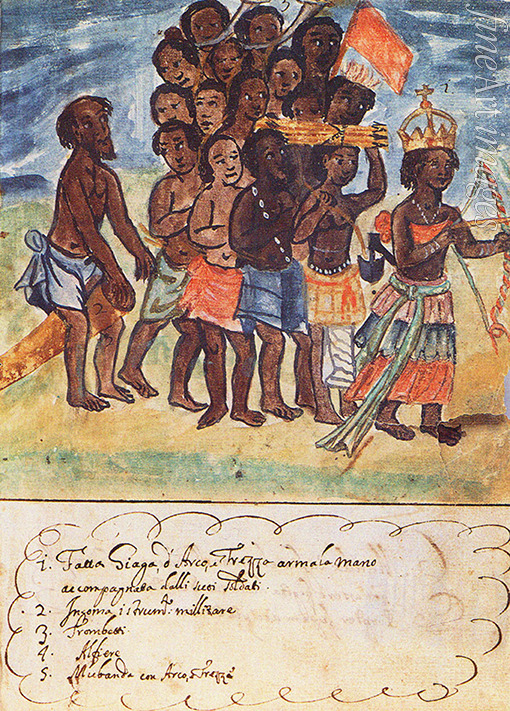 3
1
2
1. Fatta Giaga d'Arco, e Frezza armala mano
accompagnata dalli suoi Soldati.
2. Ingoma istrum.to millitare
3. Trombetti
4. Alfiere
5. Mubanda con Arco, e Frezza
fineArtImages